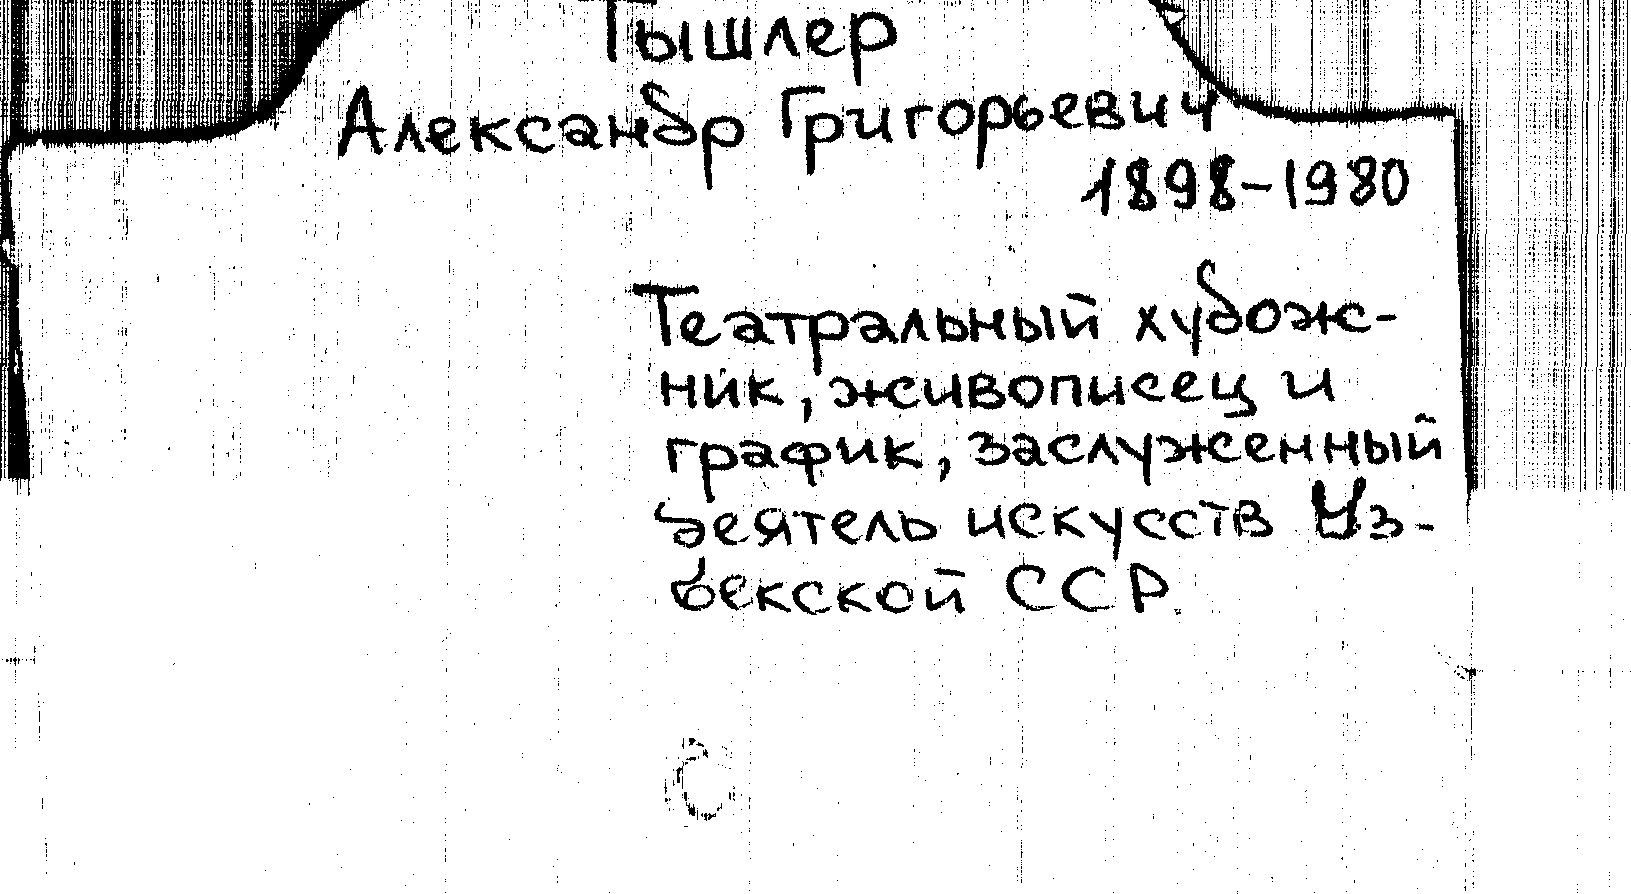 Тышлер
Александр Григорьевич
1898-1980
Театральный худож-
ник, живописец и
график, заслуженный
деятель искусств Уз-
бекской ССР.